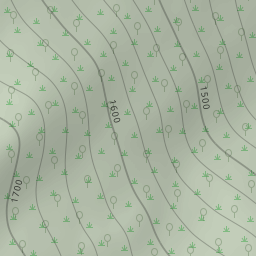 1500
1600
1700